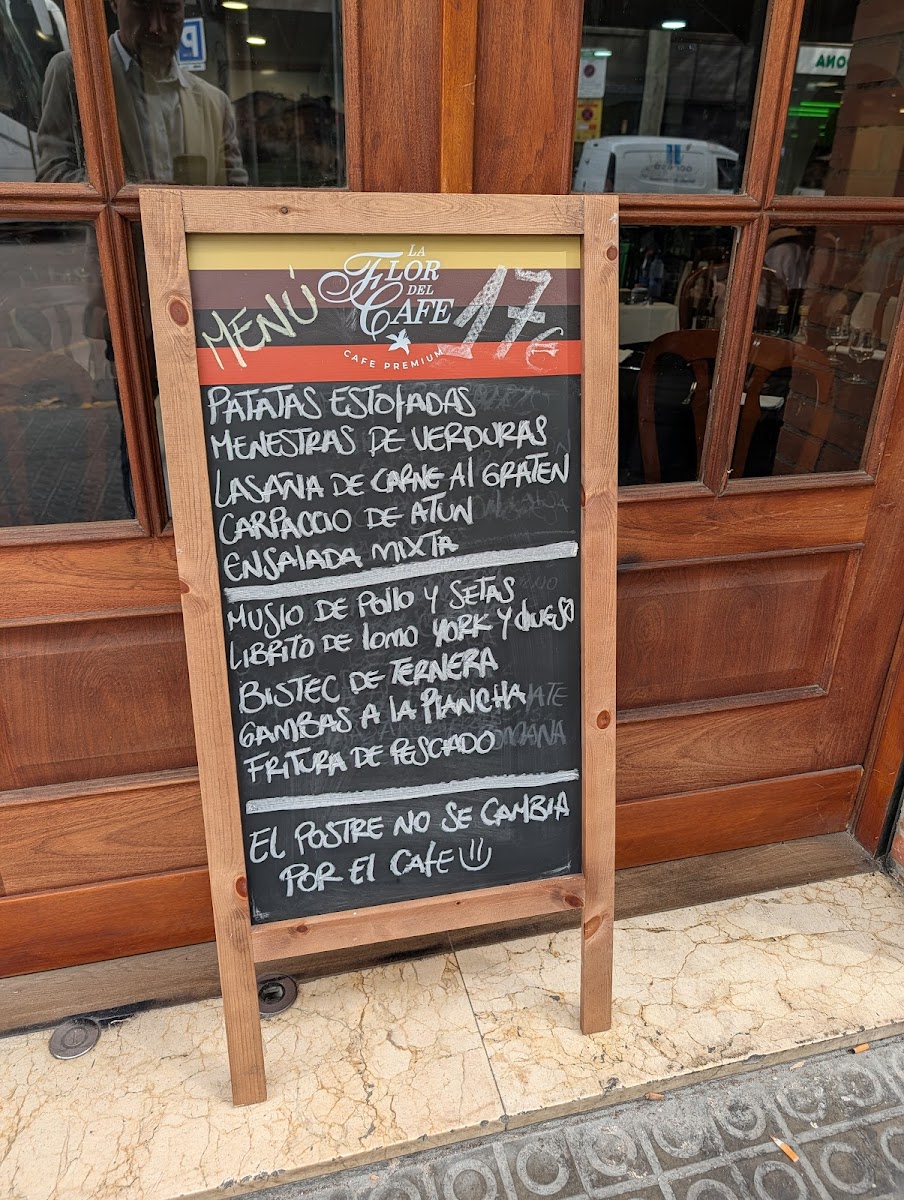 P
ONA
LA
FLOR
DEL
CAFE
CAFE PREMIUM
MENÚ 17€
PATATAS ESTOFADAS
MENESTRAS DE VERDURAS
LASAÑA DE CARNE Al GRATEN
CARPACCIO DE ATUN
ENSALADA MIXTA
MUSlO DE POllO Y SETAS
LIBRITO DE lOMO YORK Y QUESO
BISTEC DE TERNERA
GAMBAS A LA PLANCHA
FRITURA DE PESCADO
EL POSTRE NO SE CAMBIA
POR El CAFE